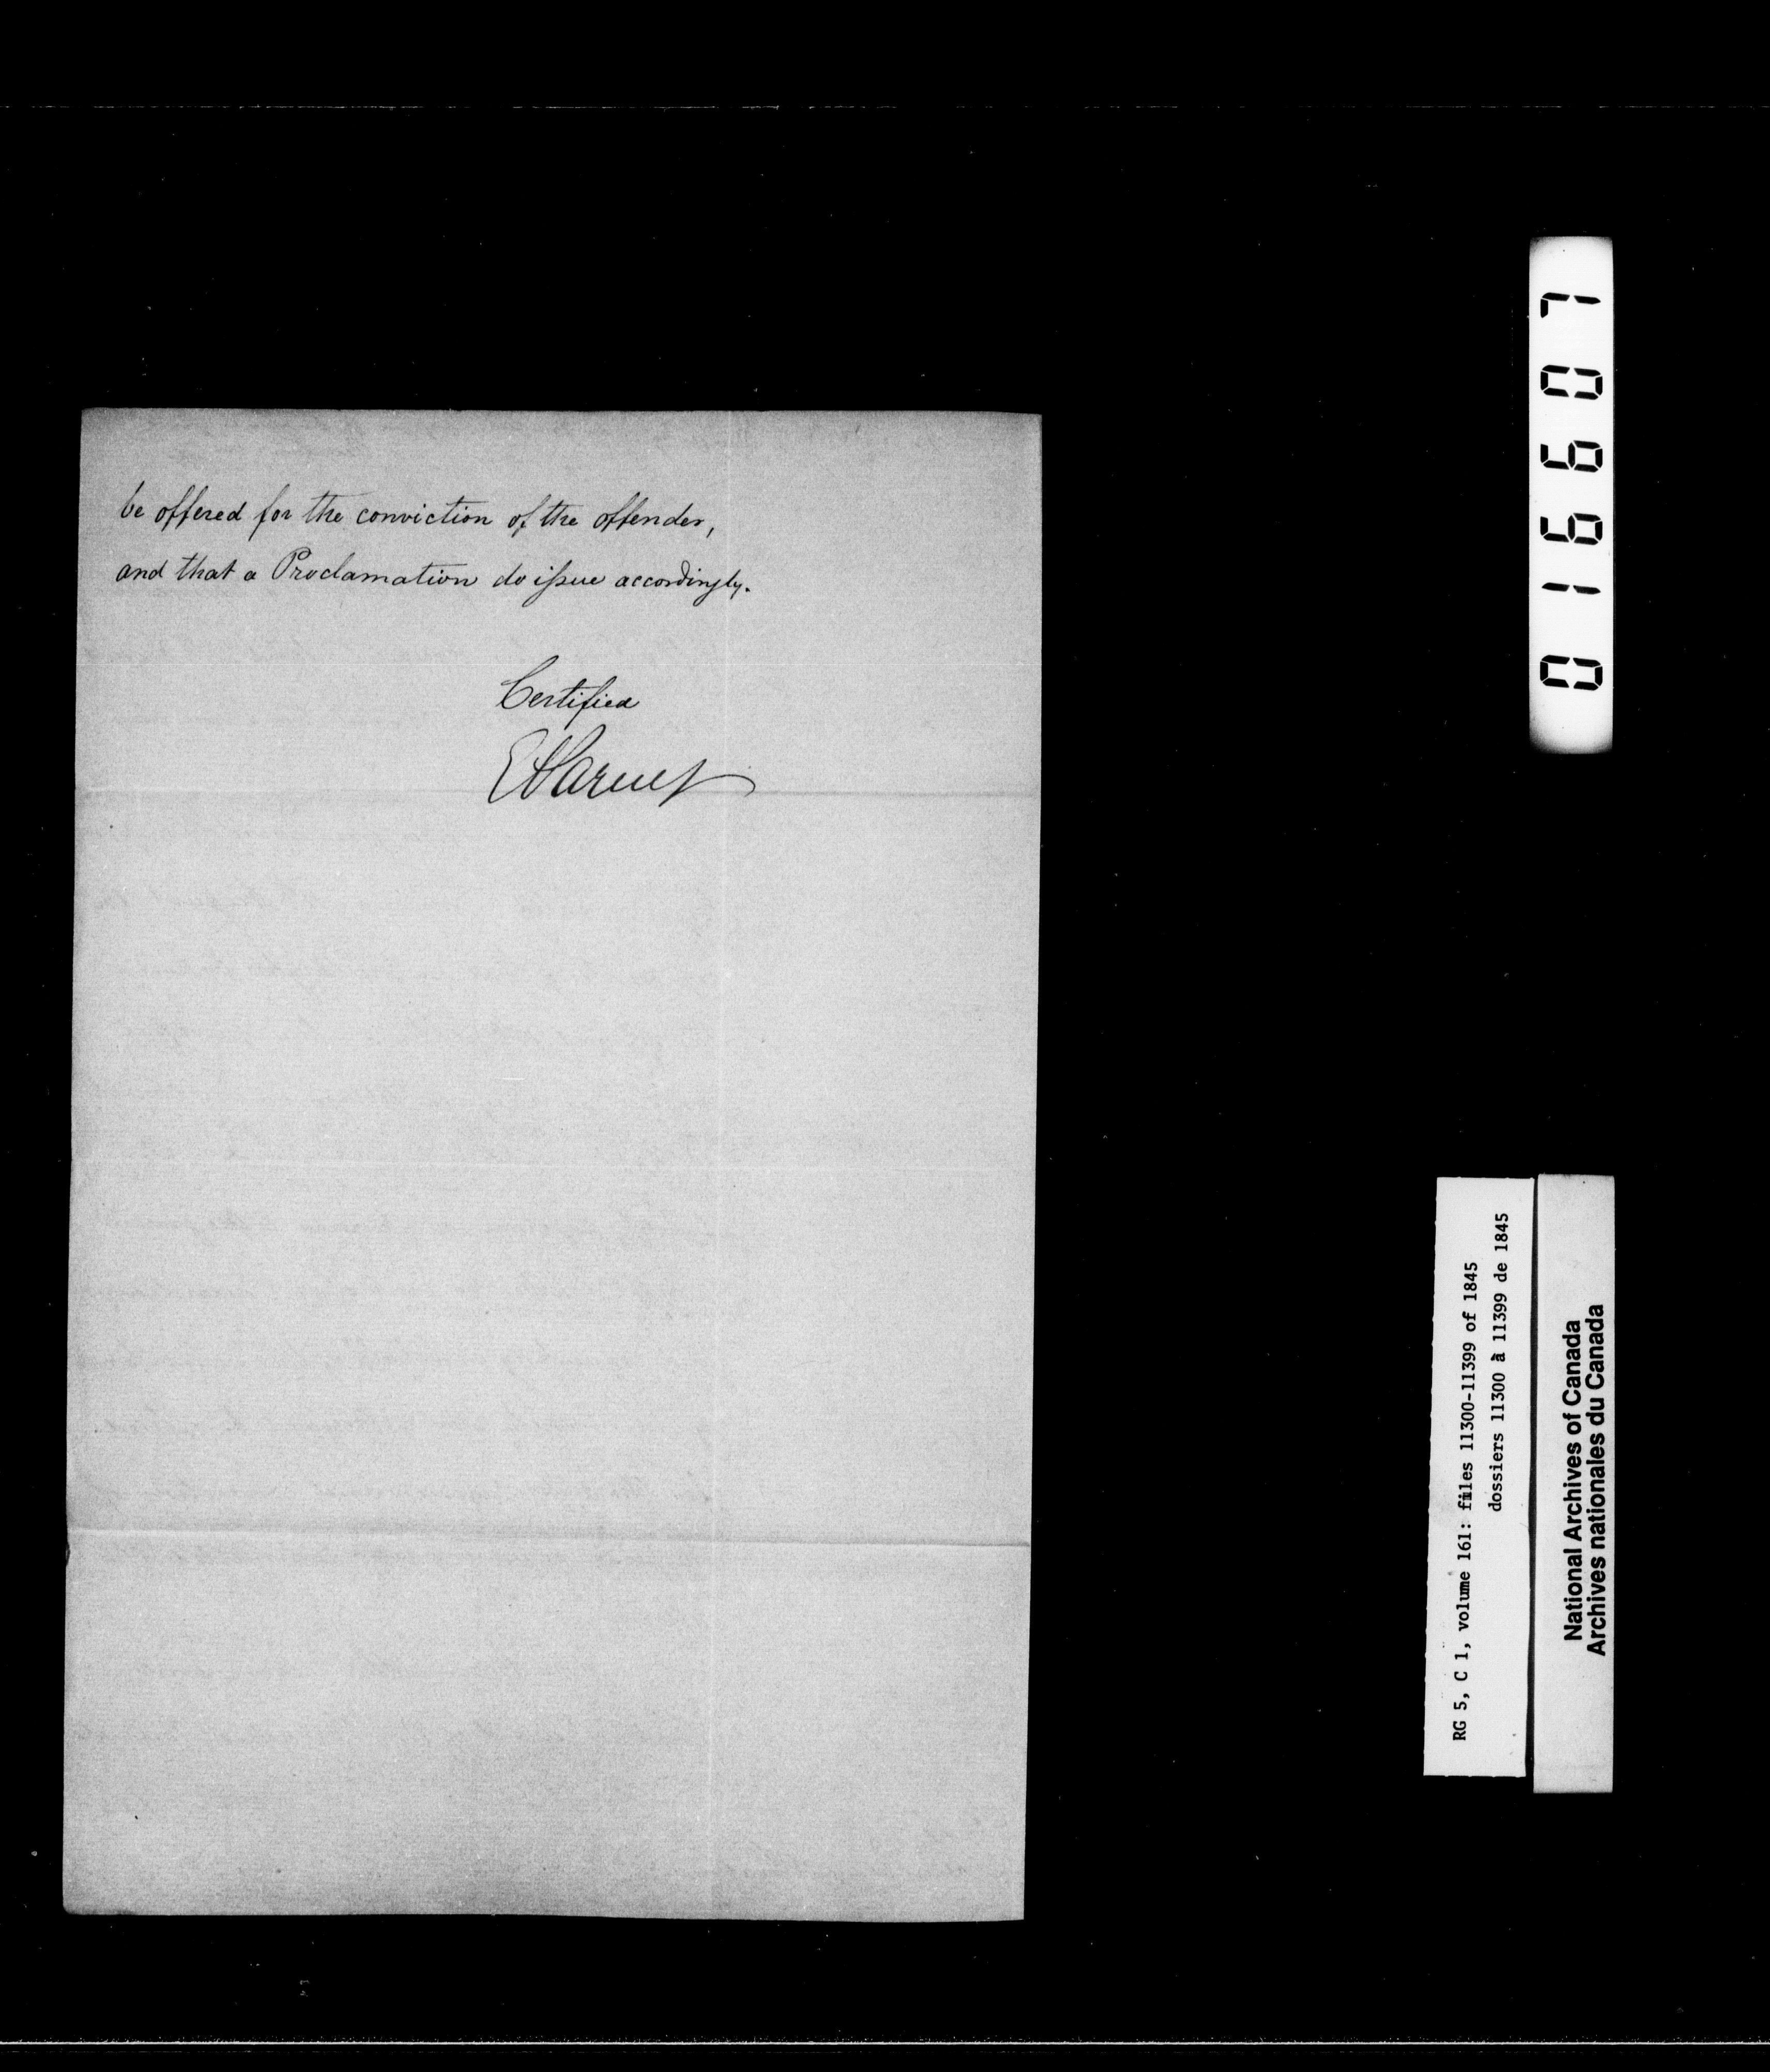 be offered for the conviction of the offender,
and that a Proclamation do issue accordingly.
Certified
016607
RG 5, C 1, volume 161: files 11300-11399 of 1845
dossiers 11300 à 11399 de 1845
National Archives of Canada
Archives nationales du Canada